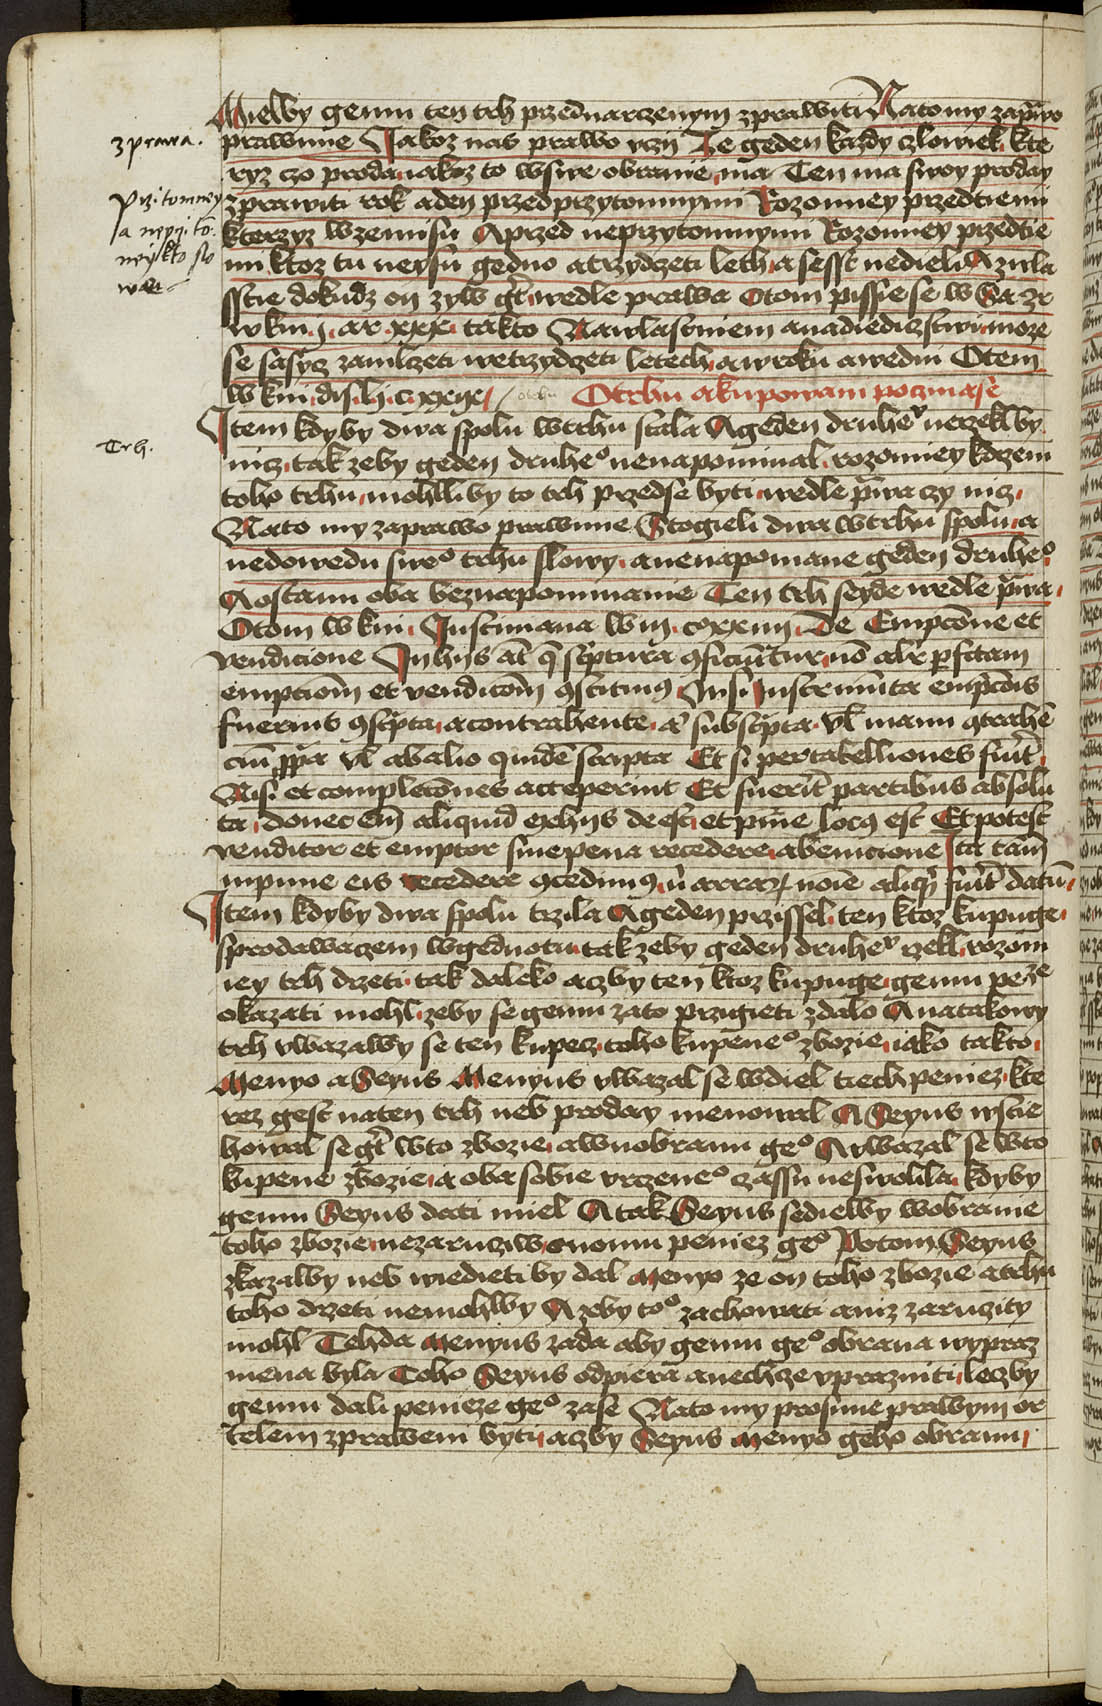 Mielby gemu ten trh przednarczenym zprawiti Nato my zapravo
zprawa.
prawime Jakoz nas prawo vczy Ze geden kazdy czlowiek kte
ryz czo proda iakoz to wswe obranie ma Ten ma swoy proday
Przitomney
zprawiti rok aden przed przytomnymi Rozomney przed tiemi
a neprzitō.
kterzyz wzemi su A przed neprzytomnymi Rozomney przed tie
mi ktoz tu neysu gedno a trzydzeti leth a ssest nedieli A zwla
sstie dokudz on zyw gt wedle prawa O tom pissie se w
w kni j. ar xxx. takto Nawlastniem a nadiediczstwi moze
se sasycz zamlczeti we trzydzeti letech a w roku a wedni O tem
w kni O trhu a kupowani poczina se
Trh.
Item kdyby dwa spolu w trhu stala A geden druhe° nerzekl by
nicz tak zeby geden druhe° nenapominal rozomney kdrzeni
toho trhu mohlliby to trh przedse byti wedle p̄wa czy nicz
Nato my zaprawo prawime Stogieli dwa w trhu spolu a
nedowedu swe° trhu slowy a nenapomane geden druhe°
A ostanu oba beznapominanie Ten trh seyde wedle p̄wa
O tom w kni Justiniana De Empcōne et
vendicione In hijs at q̄ sc̄ptura ꝯficiūtur nō alr̄ ꝑfctam
empcioem et vendicoēm ꝯstituimꝰ nisi Instrumēta empcōis
fuerint ꝯsc̄pta a contrahente subsc̄pta vl manu ꝯtrahē
ciū ꝓpa vl ab alio quidē scripta Et si per tabelliones fiūt
Nisi et completōnes acceperint Et fuerīt partibus absolu
ta donec em̄ aliquid ex hijs deest et pnie locꝰ est Et potest
venditor et emptor sine pena recedere ab empcione Ita tam̄
inpune eis recedere ꝯcedimꝰ arrarꝝ noīe aliqd fuīt datū
Item kdyby dwa spolu trzila A geden przissel ten ktoz kupuge
sprodawaczem wgednotu tak zeby geden druhe° rzekl rozom
ney trh drzeti tak daleko aczby ten ktoz kupuge gemu peze
okazati mohl zeby se gemu zato przigieti zdalo A natakowy
trh vwazalby se ten kupecz toho kupene° zbozie iako takto
Menyo a Seyus Menyus vwazal se wdiel tiech peniez kte
rez gest naten trh neb proday menowal A Seyus vstie
howal se gt w to zbozie a w nobranu ge° A vwazal se w to
kupene zbozie a oba sobie vrczene° czassu neswolila kdyby
gemu Seyus dati miel A tak Seyus sedielby wobranie
toho zbozie nezarucziw onomu peniez ge° Potom Seyus
zkazalby neb wiedieti by dal Menyo ze on toho zbozie a trhu
toho drzeti nemohlby A zeby to° zachowati aniz zaruczity
mohl Tehda Menyus zada aby gemu ge° obrana wypraz
niena byla Toho Seyus odpiera a nechcze vprazniti leczby
gemu dali penieze ge° zase Nato my prosime prawym or
telem zpraweni byti aczby Seyus Menyo geho obranu